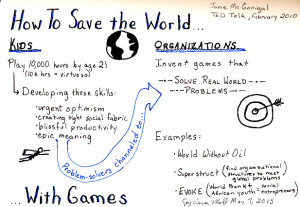 How To Save the World...
Jane McGonigal
TED Talk, February 2010
KIDS
Play 10,000 hours by age 21
(10k hrs = virtuoso)
Developing these skills:
• urgent optimism
• creating tight social fabric
• blissful productivity
• epic meaning
Problem-solvers channeled to...
ORGANIZATIONS
Invent games that
SOLVE REAL WORLD
PROBLEMS
Examples:
• World Without Oil
• Superstruct (find organizational
structures to meet
global problems)
• EVOKE (World Bank + social
African youth = entrepreneurs)
May 7, 2015
...With Games